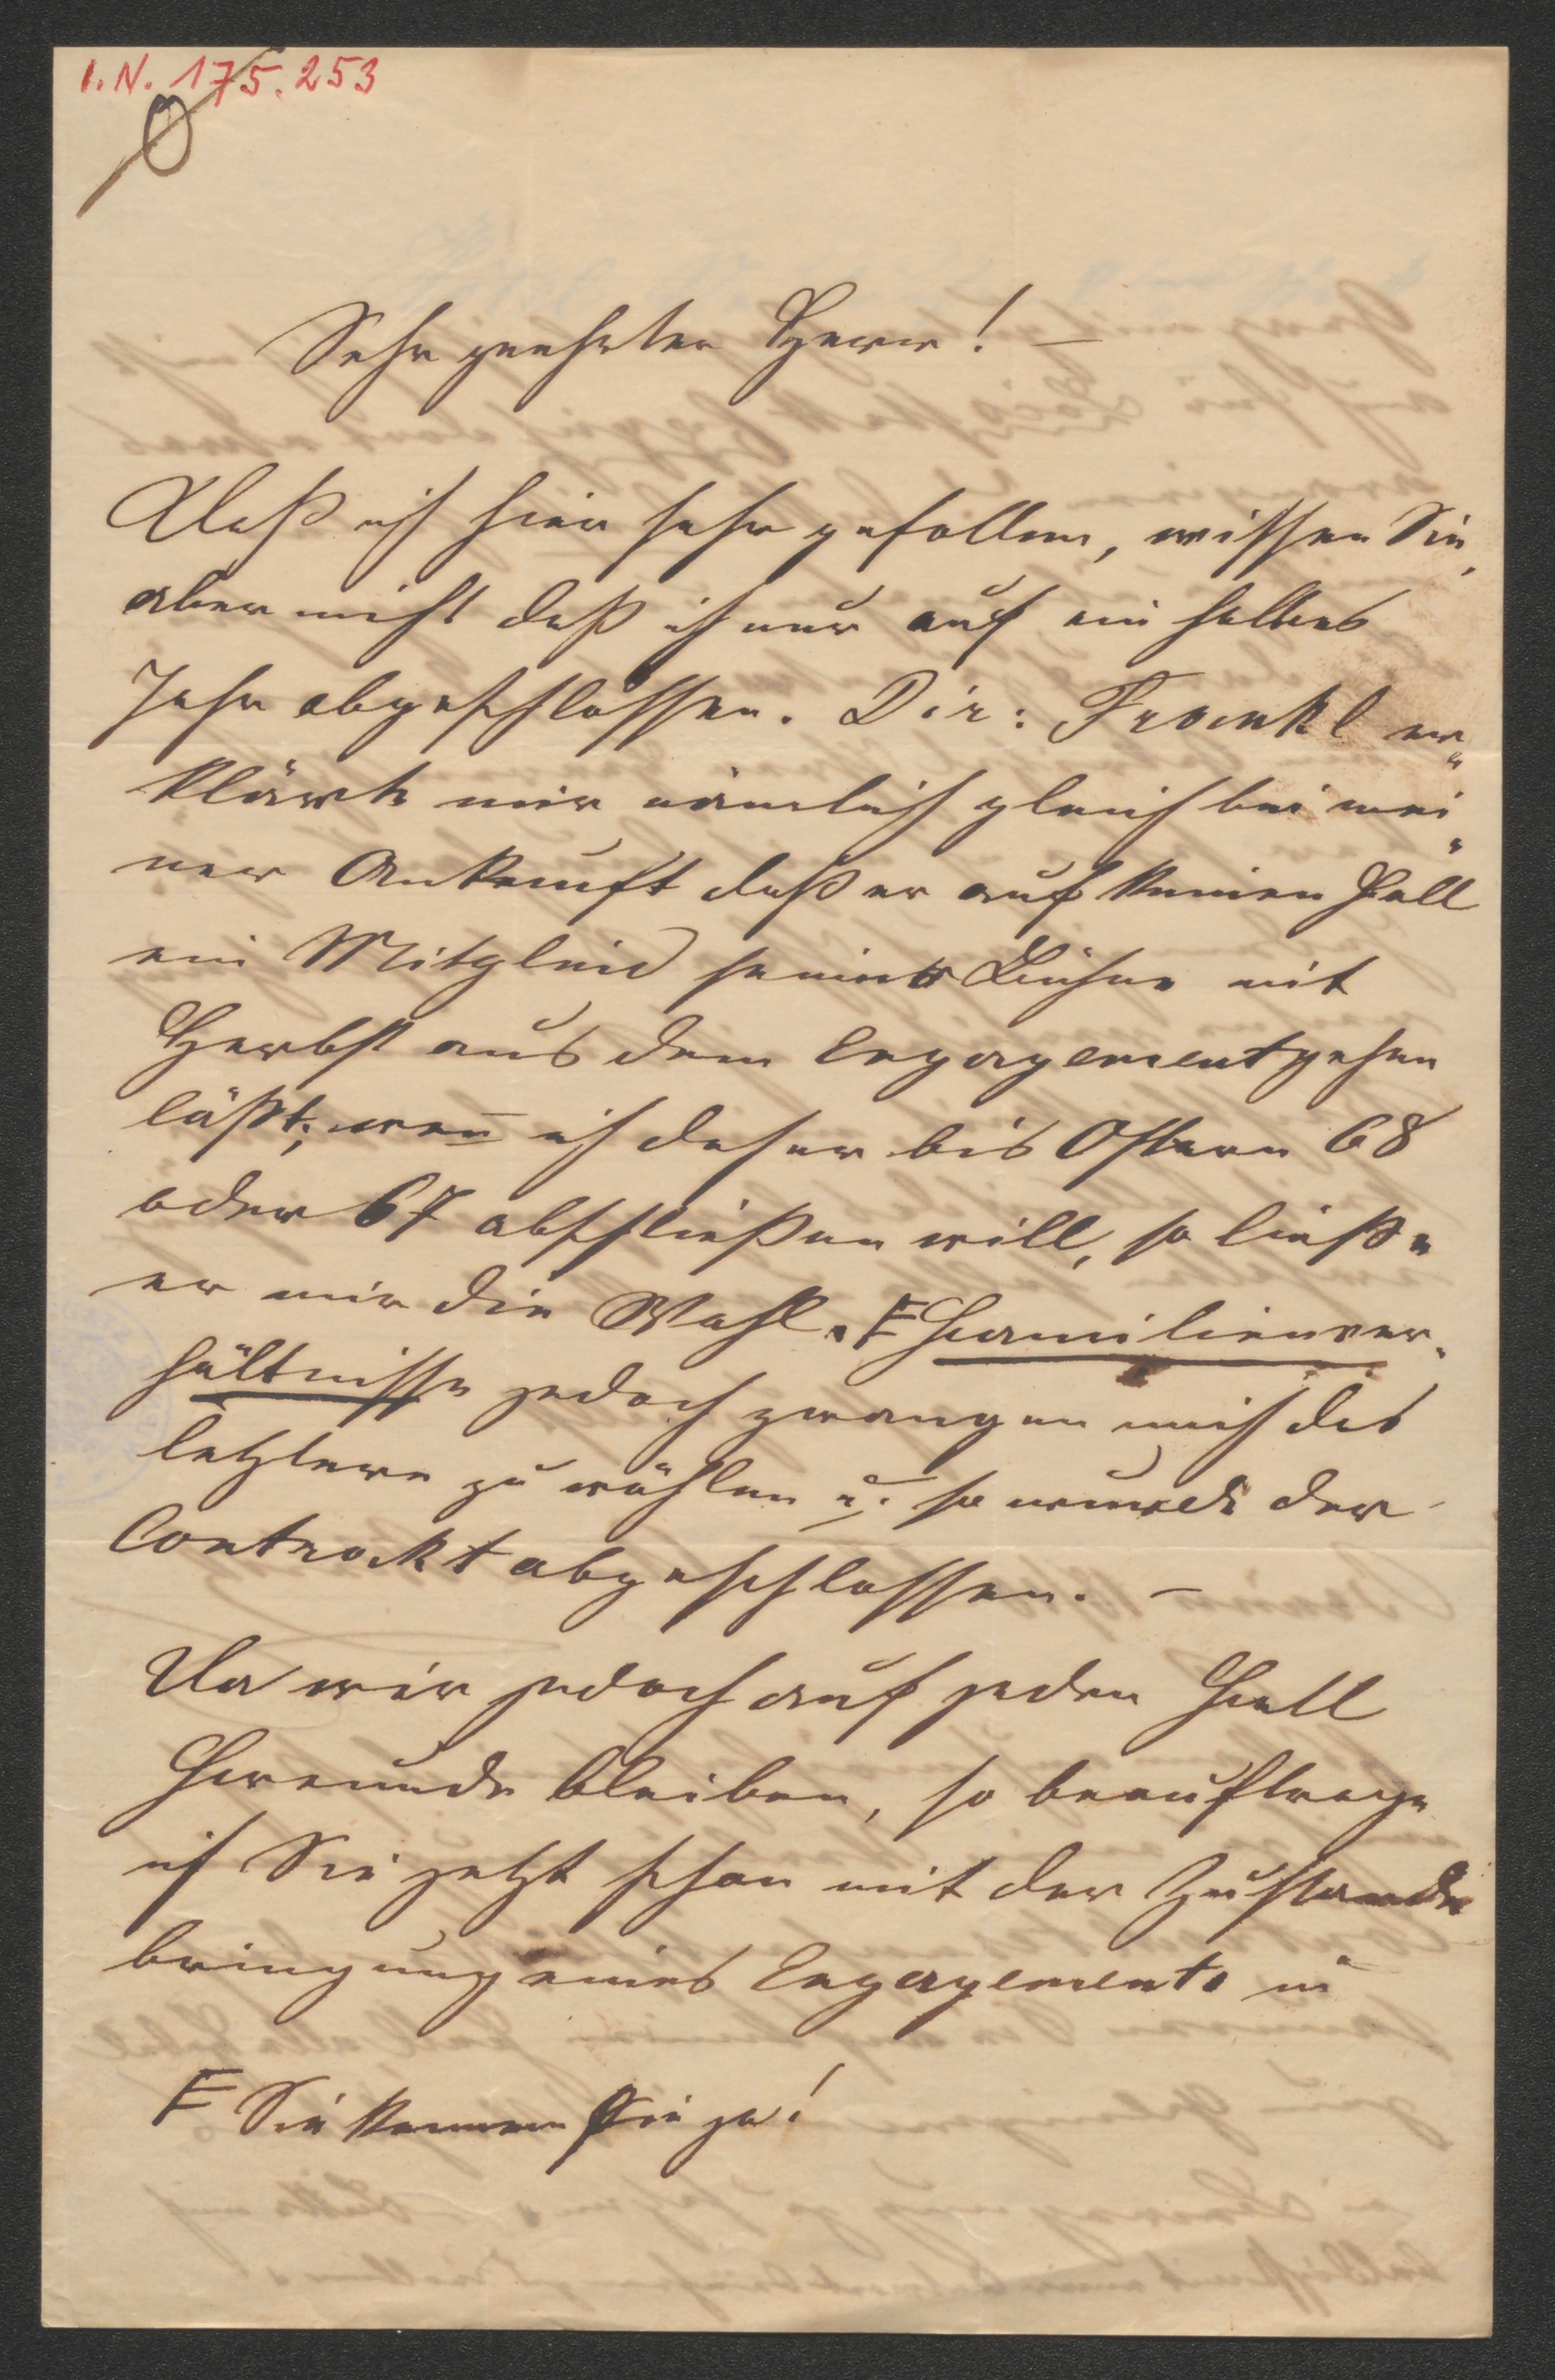 I.N. 175.253
Sehr geehrter Herr! —
Daß ich hier sehr gefallen, wissen Sie,
aber nicht daß ich nur auf ein halbes
Jahr abgeschlossen. Dir: Fraenkl er„
klärte mir nämlich gleich bei mei„
ner Ankunft daß er auf keinen Fall
ein Mitglied seiner Bühne mit
Herbst aus dem Engagement gehen
läßt; wen̄ ich daher bis Ostern 68
oder 67 abschließen will, so ließe
er mir die Wahl. F Familienver„
hältnisse jedoch zwangen mich das
letztere zu wählen u. so wurde der
Contrackt abgeschlossen. —
Da wir jedoch auf jeden Fall
Freunde bleiben, so beauftrage
ich Sie jetzt schon mit der Zustande
bringung eines Engagements in
F Sie kennen sie ja!